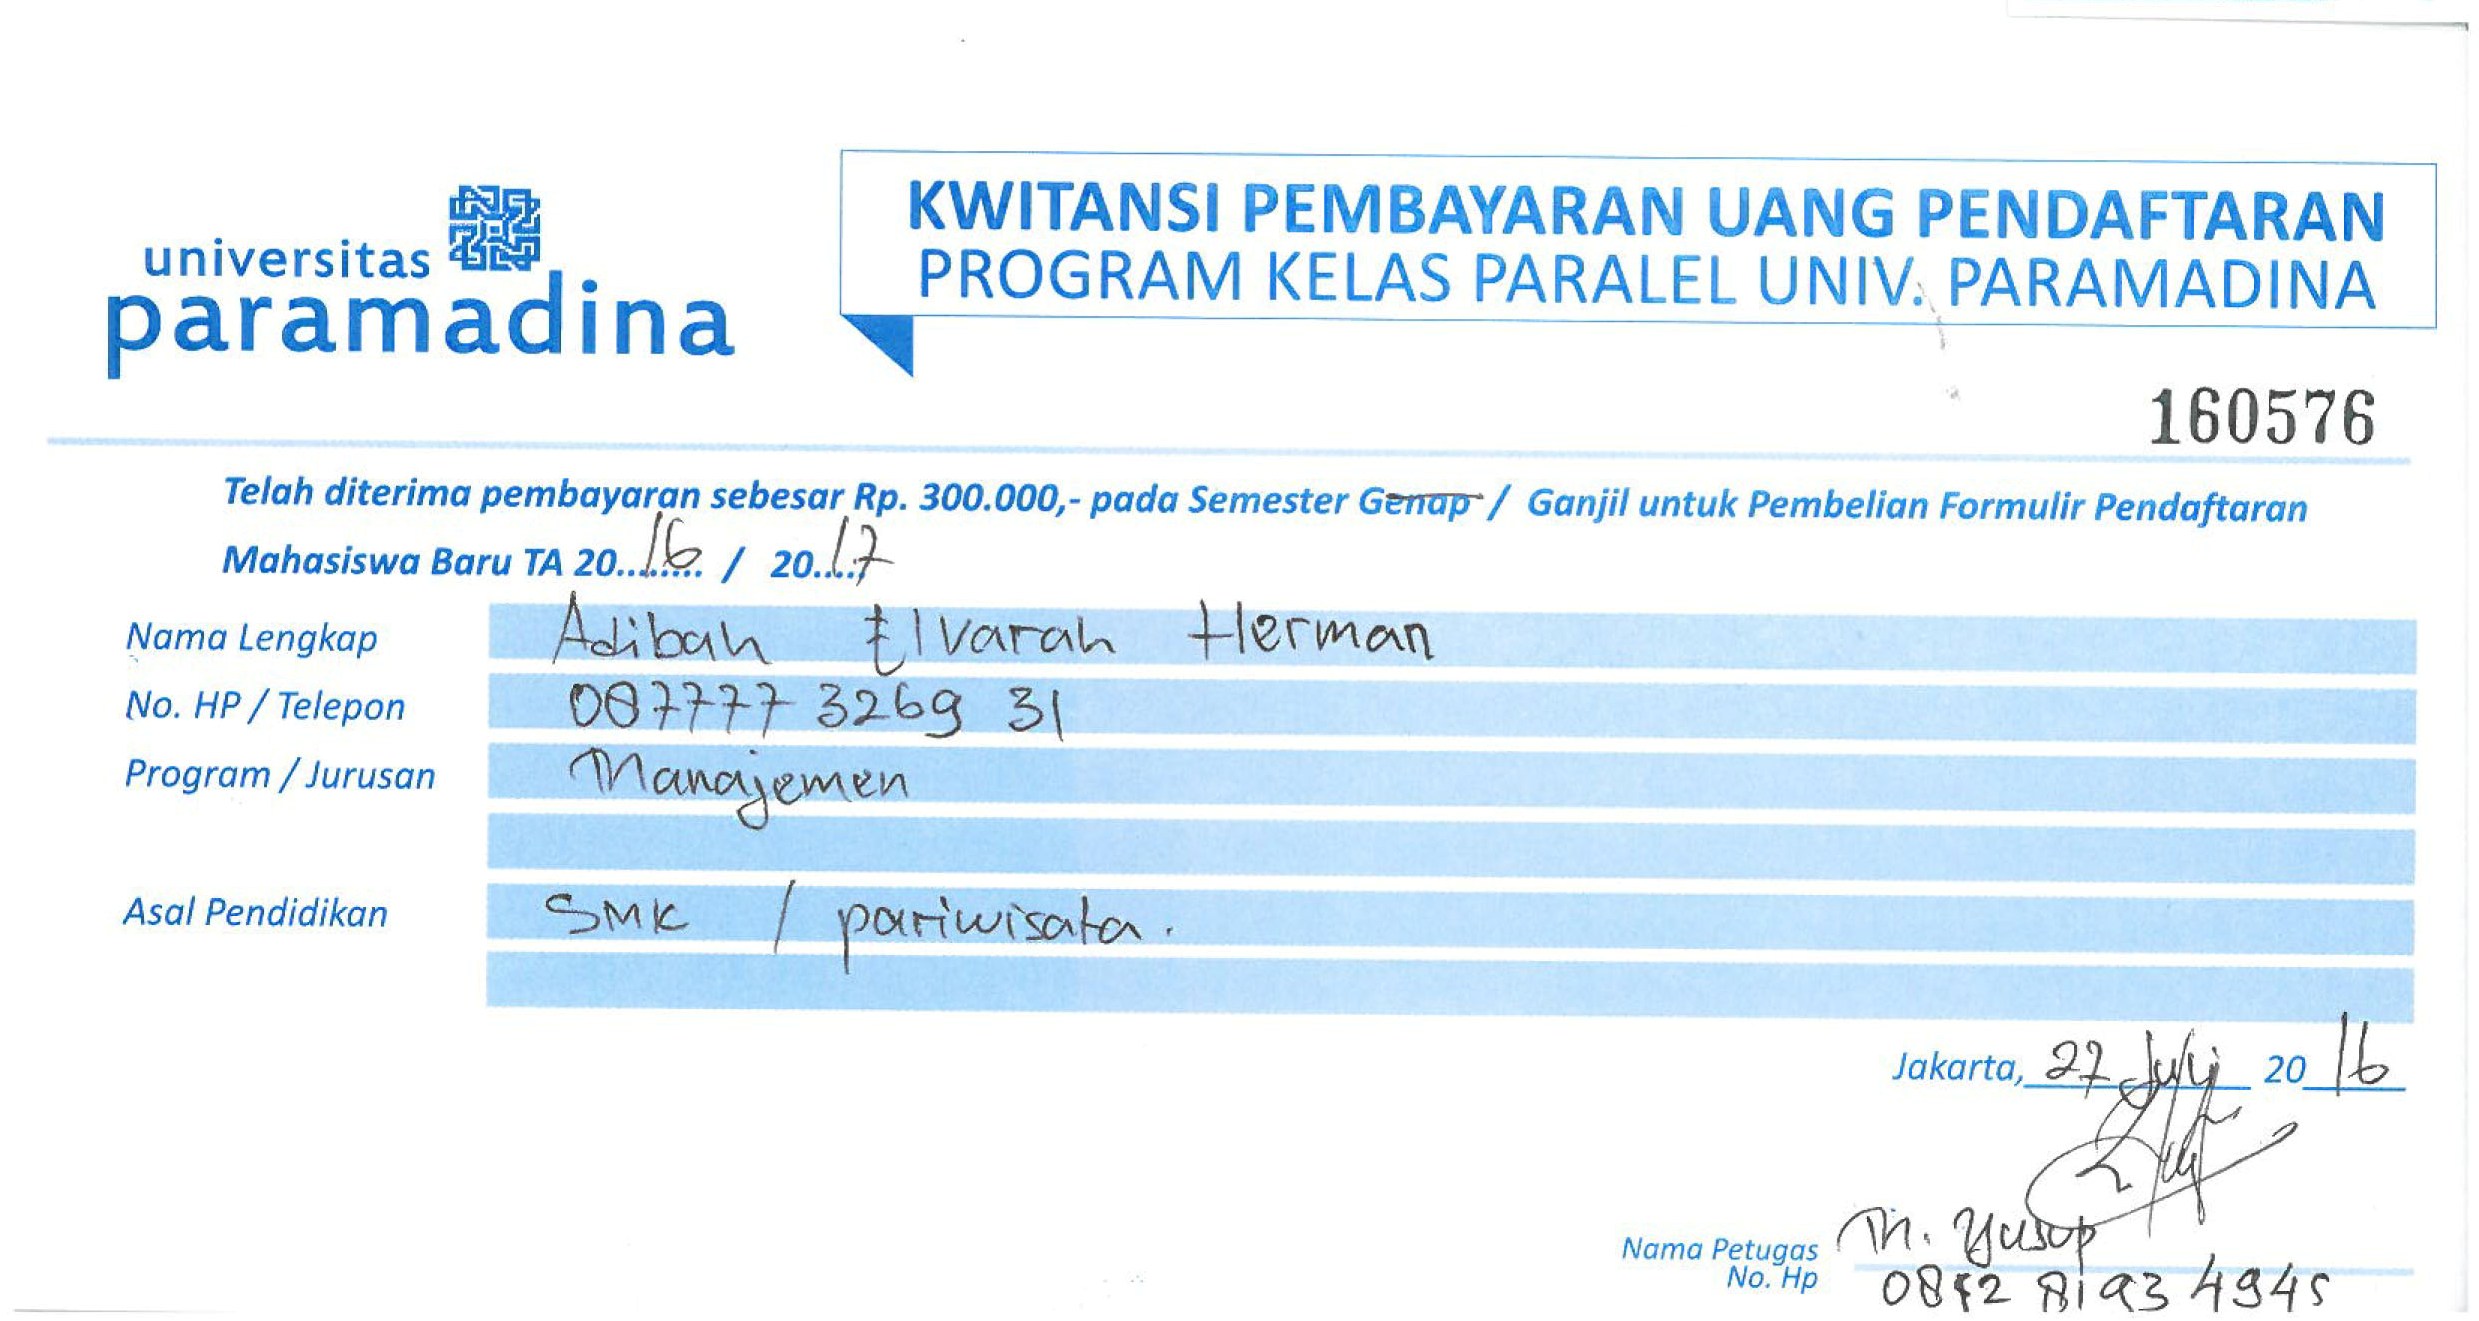 universitas
paramadina
KWITANSI PEMBAYARAN UANG PENDAFTARAN
PROGRAM KELAS PARALEL UNIV. PARAMADINA
160576
Telah diterima pembayaran sebesar Rp. 300.000,- pada Semester Genap / Ganjil untuk Pembelian Formulir Pendaftaran
Mahasiswa Baru TA 20..16.. / 20..17
Nama Lengkap Adibah Elvarah Herman
No. HP / Telepon 087777 3269 31
Program / Jurusan Manajemen
Asal Pendidikan SMK / pariwisata.
Jakarta, 27 Juli 20 16
Nama Petugas M. Yusup
No. Hp 8193 4945